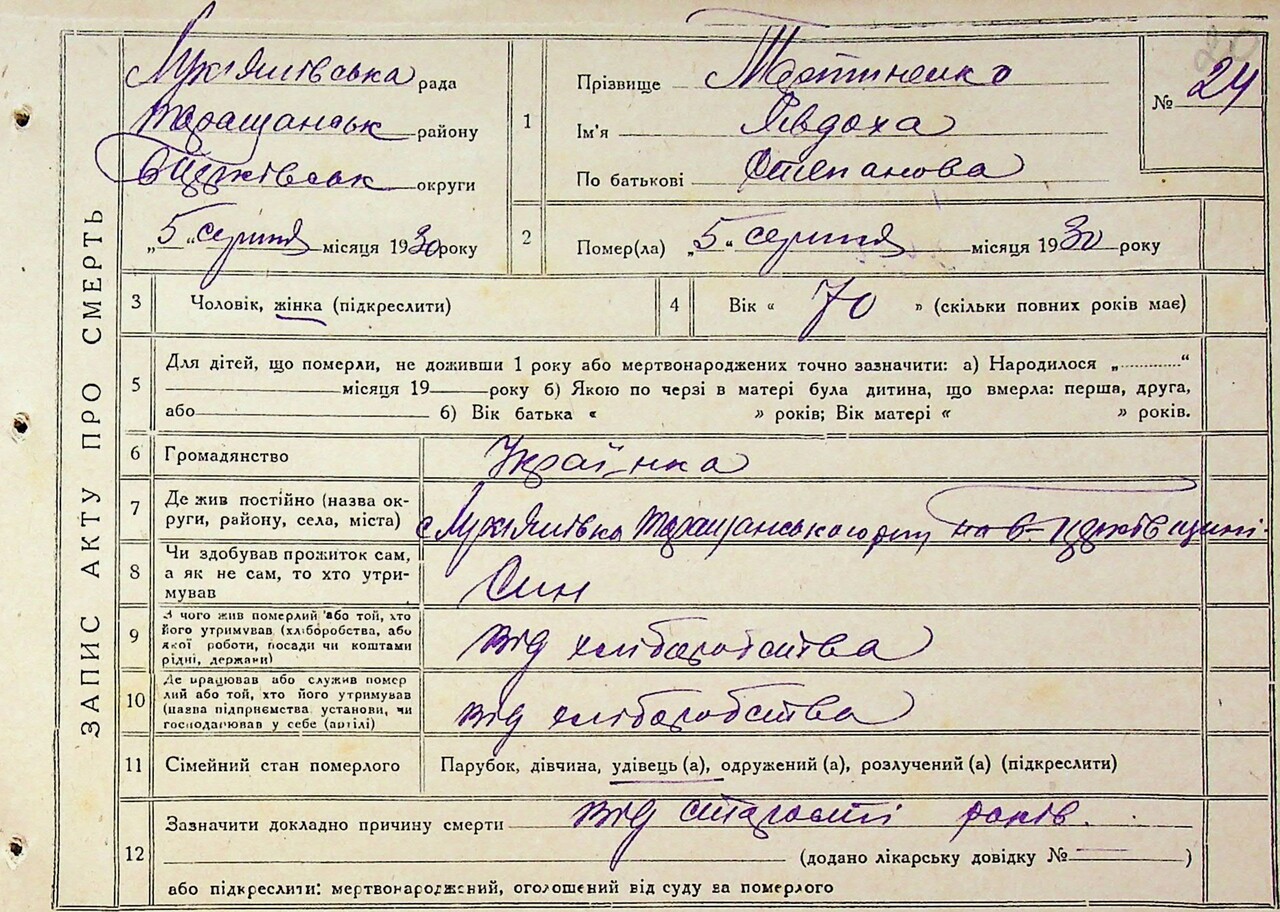 ЗАПИС АКТУ ПРО СМЕРТЬ
Лукіянівська рада
Таращанськ району
Бцерківськ округи
„5“ серпня місяця 1930 року
№ 24
1
Прізвище
Ім'я Явдоха
По батькові Степанова
2 Помер(ла) „5“ серпня місяця 1930 року
3 Чоловік, жінка (підкреслити)
4 Вік « 70 » (скільки повних років має)
5 Для дітей, що померли, не доживши 1 року або мертвонароджених точно зазначити: а) Народилося „ “
місяця 19 року б) Якою по черзі в матері була дитина, що вмерла: перша, друга,
або б) Вік батька « » років; Вік матері « » років.
6 Громадянство Українка
7 Де жив постійно (назва ок-
руги, району, села, міста) с Лукіянівка Таращанського рну на Б-Церківщині
8 Чи здобував прожиток сам,
а як не сам, то хто утри-
мував Син
9 З чого жив померлий або той, хто
його утримував (хліборобства, або
якої роботи, посади чи коштами
рідні, держави) від хліборобства
10 Де працював або служив помер
лий або той, хто його утримував
(назва підприємства установи, чи
господарював у себе (артілі) від хліборобства
11 Сімейний стан померлого Парубок, дівчина, удівець (а), одружений (а), розлучений (а) (підкреслити)
12 Зазначити докладно причину смерти від старости років.
(додано лікарську довідку № )
або підкреслити: мертвонароджений, оголошений від суду за померлого